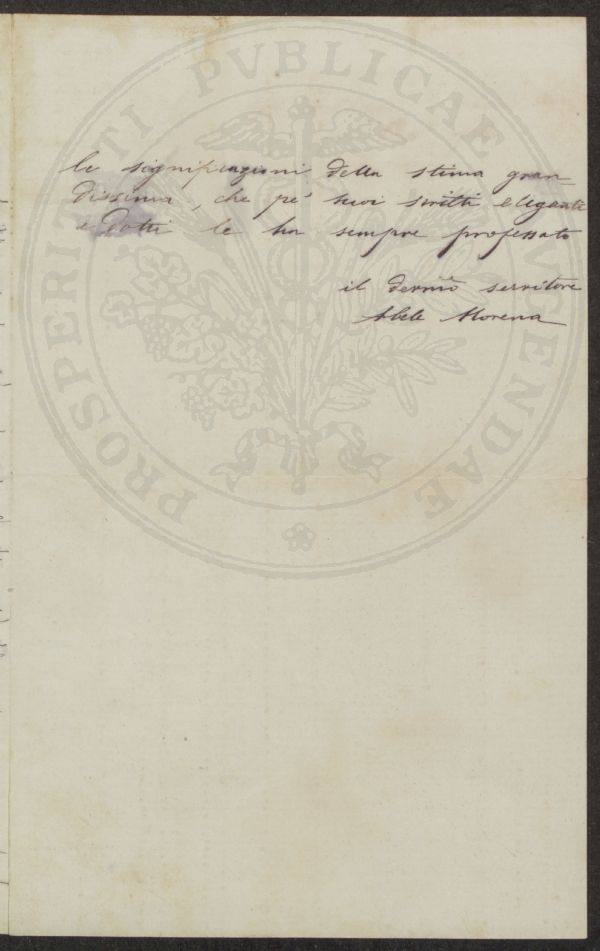 le significazioni della stima gran-
dissima, che pe' suoi scritti eleganti
e dotti le ha sempre professato
il devmo servitore
Abele Morena
PROSPERITATI PVBLICAE AVGENDAE